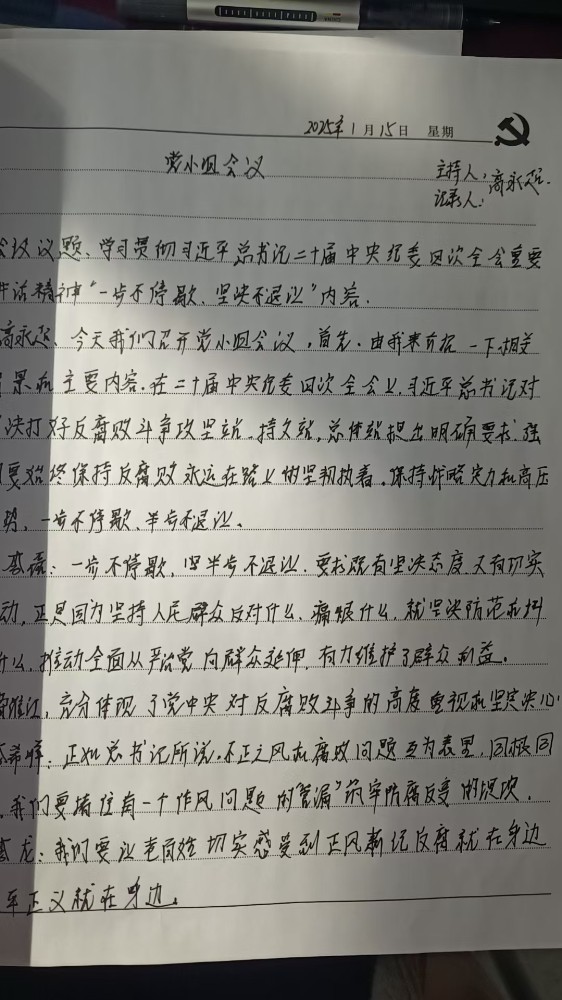 2025年1月15日 星期
党小组会议
主持人:高永超
记录人:
会议议题、学习贯彻习近平总书记二十届中央纪委四次全会重要
讲话精神“一步不停歇、坚决不退让”内容.
高永超、今天我们召开党小组会议,首先.由我来介绍一下相关
背景和主要内容.在二十届中央纪委四次全会上,习近平总书记对
决打好反腐败斗争攻坚站.持久站,总体站提出明确要求.强
要始终保持反腐败永远在路上的坚韧执着.保持战略定力和高压
势,一步不停歇、半步不退让.
:一步不停歇,坚半步不退让.要求既有坚决态度又有切实
动,正是因为坚持人民群众反对什么、痛恨什么,就坚决防范和纠
什么.推动全面从严治党向群众延伸,有力维护了群众利益.
江,充分体现了党中央对反腐败斗争的高度重视和坚定决心.
:正如总书记所说.不正之风和腐败问题互为表里,同根同
.我们要堵住每一个作风问题的“管漏”筑牢防腐反变的堤坝.
龙:我们要让老百姓切实感受到正风肃纪反腐就在身边
平正义就在身边.